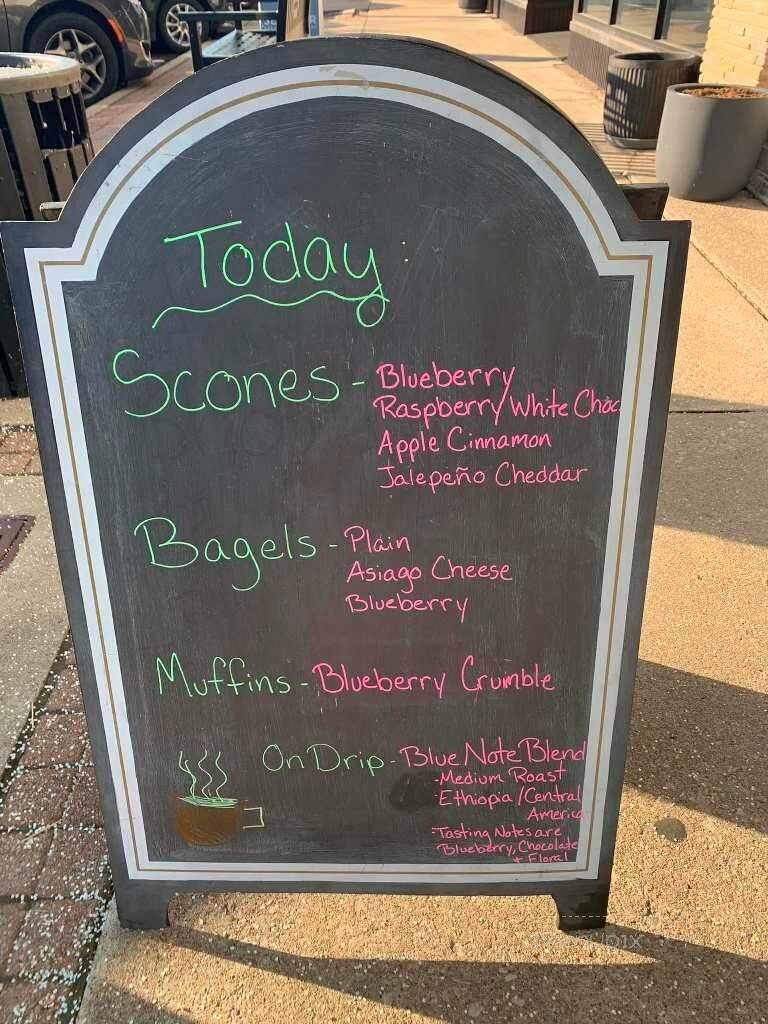 Today
Scones - Blueberry
Raspberry/White Choc
Apple Cinnamon
Jalepeño Cheddar
Bagels - Plain
Asiago Cheese
Blueberry
Muffins - Blueberry Crumble
On Drip - Blue Note Blend
-Medium Roast
Ethiopia/Central
America
-Tasting Notes are
Blueberry, Chocolate
+ Floral